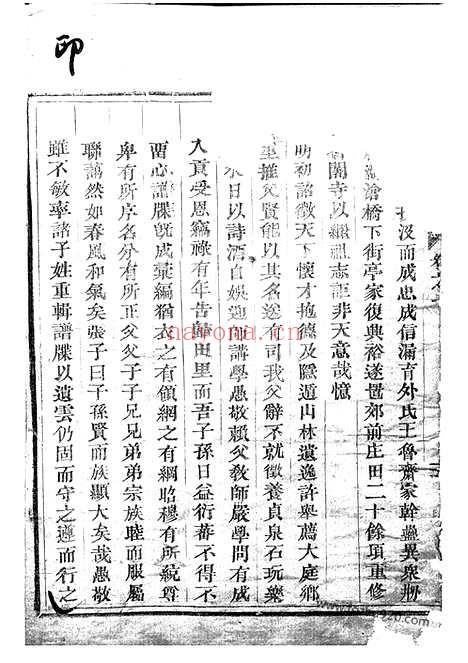 印
没而成忠成信漏育外氏王魯齋家幹蠱異衆剏
滄橋下街亭家復興裕遂置郊前庄田二十餘項重修
闍寺以繼祖志詎非天意哉憶
明初詔徵天下懷才抱德及隱遁山林遺逸許舉薦大庭鄉
里推父賢能以其名送有司我父辭不就徵養貞泉石玩樂
水日以詩酒自娛迎師講學愚敬賴父教師嚴學問有成
入貢受恩竊祿有年告歸田里而吾子孫日益衍蕃不得不
留心譜牒旣成彙編猶衣之有領網之有綱昭穆有所統尊
卑有所序名分有所正父父子子兄兄弟弟宗族睦而服屬
聯藹然如春風和氣矣張子曰子孫賢而族顯大矣哉愚敬
雖不敏率諸子姓重輯譜牒以遺雲仍固而守之遵而行之
nayona.cn